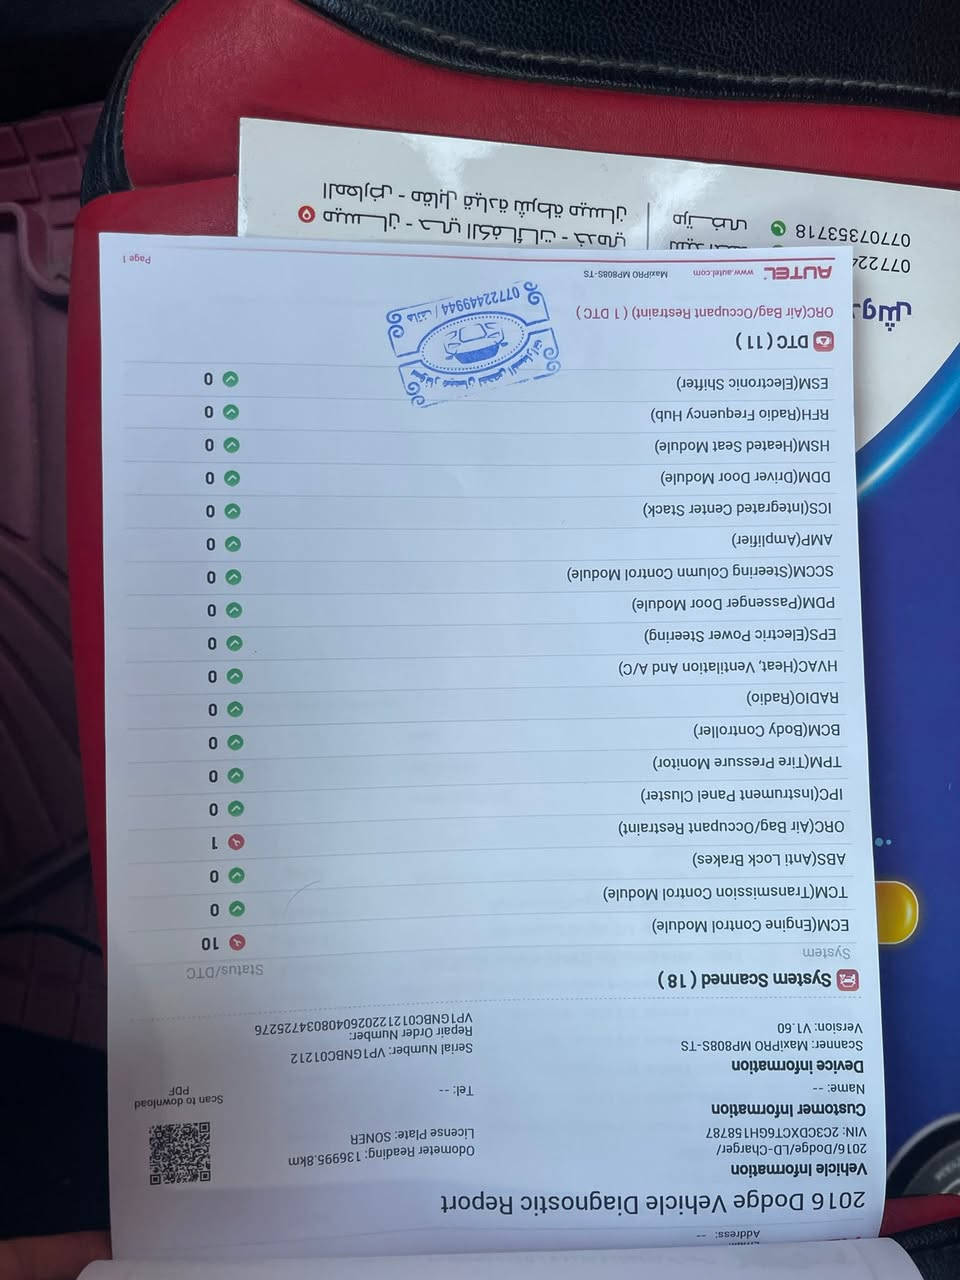 Address: --
2016 Dodge Vehicle Diagnostic Report
Vehicle Information
2016/Dodge/LD-Charger/
VIN: 2C3CDXCT6GH158787
Odometer Reading: 136995.8km
License Plate: SONER
Scan to download
PDF
Customer Information
Name: --
Tel: --
Device Information
Scanner: MaxiPRO MP808S-TS
Version: V1.60
Serial Number: VP1GNBC01212
Repair Order Number:
VP1GNBC0121220260408034725276
System Scanned ( 18 )
System Status/DTC
ECM(Engine Control Module) 10
TCM(Transmission Control Module) 0
ABS(Anti Lock Brakes) 0
ORC(Air Bag/Occupant Restraint) 1
IPC(Instrument Panel Cluster) 0
TPM(Tire Pressure Monitor) 0
BCM(Body Controller) 0
RADIO(Radio) 0
HVAC(Heat, Ventilation And A/C) 0
EPS(Electric Power Steering) 0
PDM(Passenger Door Module) 0
SCCM(Steering Column Control Module) 0
AMP(Amplifier) 0
ICS(Integrated Center Stack) 0
DDM(Driver Door Module) 0
HSM(Heated Seat Module) 0
RFH(Radio Frequency Hub) 0
ESM(Electronic Shifter) 0
DTC ( 11 )
ORC(Air Bag/Occupant Restraint) ( 1 DTC )
AUTEL www.autel.com MaxiPRO MP808S-TS Page 1
سونار ميسان لفحص السيارات
هاتف / 07722449944
07707353718
ميســان - حـي الكفـاءات - قرب
المعارض - مقابل قيادة شرطة ميسان